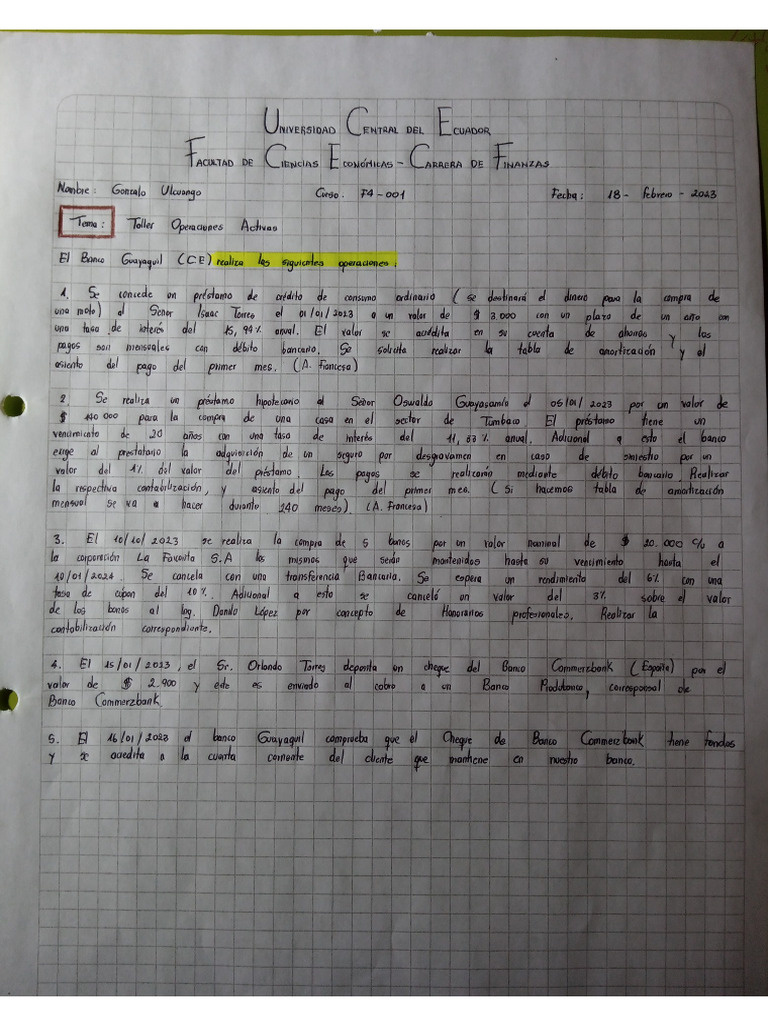 UNIVERSIDAD CENTRAL DEL ECUADOR
FACULTAD DE CIENCIAS ECONÓMICAS - CARRERA DE FINANZAS
Nombre: Gonzalo Ulcuango Curso: F4-001 Fecha: 18 - febrero - 2023
Tema: Taller Operaciones Activas
El Banco Guayaquil (CE) realiza las siguientes operaciones:
1. Se concede un préstamo de crédito de consumo ordinario (se destinará el dinero para la compra de
una moto) al Señor Isaac Torres el 01/01/2023 a un valor de $ 3.000 con un plazo de un año con
una tasa de interés del 15,99% anual. El valor se acredita en su cuenta de ahorros y los
pagos son mensuales con débito bancario. Se solicita realizar la tabla de amortización y el
asiento del pago del primer mes. (A. Francesa)
2. Se realiza un préstamo hipotecario al Señor Oswaldo Guayasamín el 05/01/2023 por un valor de
$ 140 000 para la compra de una casa en el sector de Tumbaco. El préstamo tiene un
vencimiento de 20 años con una tasa de interés del 11,83% anual. Adicional a esto el banco
exige al prestatario la adquisición de un seguro por desgravamen en caso de siniestro por un
valor del 1% del valor del préstamo. Los pagos se realizarán mediante débito bancario. Realizar
la respectiva contabilización, y asiento del pago del primer mes. (Si hacemos tabla de amortización
mensual se va a hacer durante 240 meses). (A. Francesa)
3. El 10/10/2023 se realiza la compra de 5 bonos por un valor nominal de $ 20.000 c/u a
la corporación La Favorita S.A los mismos que serán mantenidos hasta su vencimiento hasta el
10/01/2024. Se cancela con una transferencia Bancaria. Se espera un rendimiento del 6% con una
tasa de cupón del 10%. Adicional a esto se canceló un valor del 3% sobre el valor
de los bonos al Ing. Danilo López por concepto de Honorarios profesionales. Realizar la
contabilización correspondiente.
4. El 15/01/2023, el Sr. Orlando Torres deposita un cheque del Banco Commerzbank (España) por el
valor de $ 2.900 y este es enviado al cobro a un Banco Produbanco, corresponsal de
Banco Commerzbank
5. El 16/01/2023 el banco Guayaquil comprueba que el Cheque de Banco Commerzbank tiene fondos
y se acredita a la cuenta corriente del cliente que mantiene en nuestro banco.